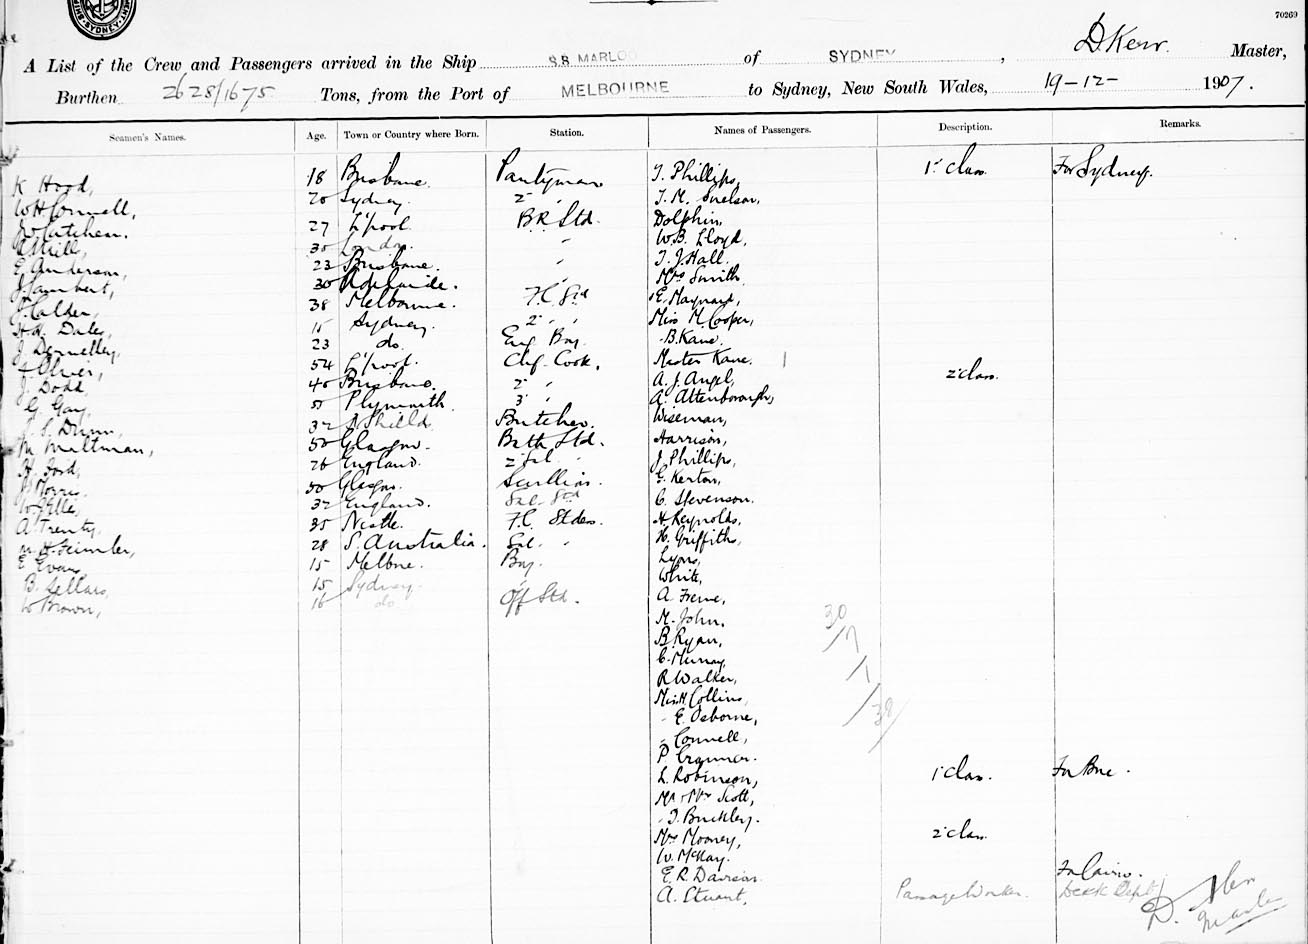 70269
SYDNEY
A List of the Crew and Passengers arrived in the Ship S.S. MARLOO of SYDNEY, D Kerr. Master,
Burthen 2628/1675 Tons, from the Port of MELBOURNE to Sydney, New South Wales, 19-12- 1907.
Seamen's Names. Age. Town or Country where Born. Station. Names of Passengers. Description. Remarks.
K Hood, 18 Brisbane. Pantryman T. Phillips, 1" Class For Sydney.
W H Connell, 20 Sydney. 2 " T. M. Snelson,
27 L'pool. B.R. Std. Dolphin,
A Hill, 30 London. " W.B. Lloyd,
E Anderson, 23 Brisbane. " T. J. Hall.
J Lambert, 30 Adelaide. " Mrs Smith
J Calder, 38 Melbourne. F.C. Std E. Maynard,
H. W. Daley, 15 Sydney. 2 " " Miss M Cooper,
J Donnelley, 23 do. Eng. Boy. " B. Kane.
F Oliver, 54 L'pool. Chf. Cook. Master Kane.
J. Dodd, 40 Brisbane. 2 " A. J. Angel, 2 class.
G Gay, Plymouth. 3 " A. Attenborough,
S. Dunn, 32 N Shields Butcher. Wiseman,
M Miltman, 50 Glasgow. Bath Std. Harrison,
H. Ford, 26 England. 2 Sal " J Phillips,
J Morris. 50 Glasgow. Scullion. G. Kerton,
W Elle, 32 England. Sal. Std C. Stevenson.
A. Trenty. 35 N'castle. F.C. Stdess. H Reynolds,
28 S. Australia. Sal. " H. Griffith,
E Evans 15 Melbne. Boy. Lyons,
B. Sellars, 15 Sydney. " White,
W Brown, 16 do Off Std. A. Frene,
M. John.
B Ryan,
C. Murray,
R Walker,
Miss H. Collins,
" E. Osborne,
" Connell,
P
L. Robinson, 1 Class. For Bne.
Mr & Mrs Scott,
" T. Buckley.
Mrs Mooney, 2 class.
W. McKay.
E. R. Davison For Cairns.
A. Stuart, Passage Worker. Deck Dept
30
/7
/1
/38